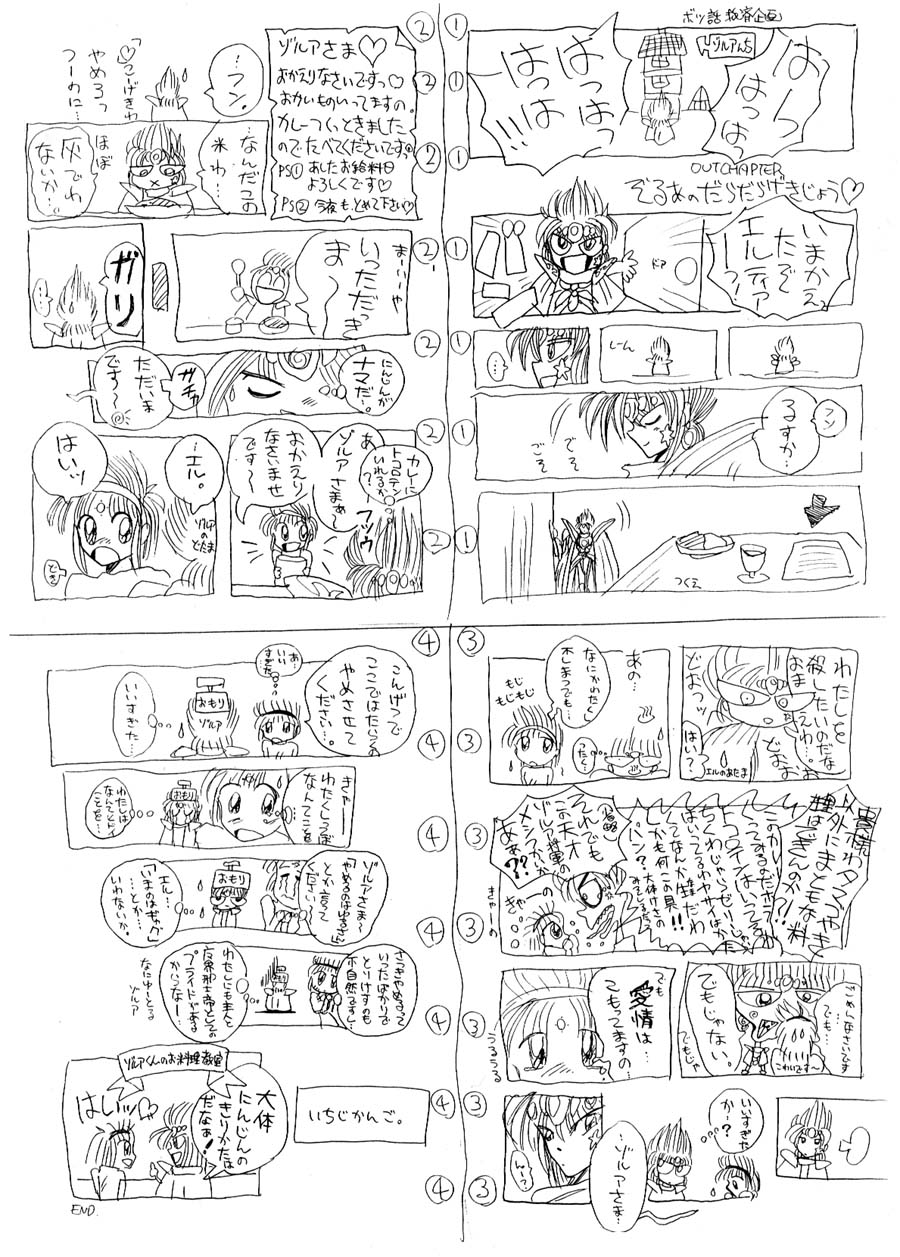 ボツ話救済企画
①
はーっ
はっはっ
ゾルアんち
はっはっ
はっは
!!!
①
OUTCHAPTER
ぞるあのだらだらげきじょう♡
①
いまかえっ
たぞ
エル
ティア
ーッ
ドア
①
しーん
…
①
フン
るすか…
でで
ごそ
ごそ
①
つくえ
②
ゾルアさま♡
おかえりなさいですっ♡
おかいものいってますの。
カレーつくっときました
ので、たべてくださいですっ
PS① あしたお給料日
よろしくです♡
PS② 今夜もとめて下さい♡
…フン。
「♡こーげきわ
やめろっ
つーのに…
②
…なんだこの
米わ…
ほぼ
灰でわ
ないか…
②
まーいーや
いっただっき
ま〜
ガリ
…
②
にんじんが
ナマだ…。
ガチャ
ただいま
です〜
②
カレーに
トコロテン
いれるか?
フッウ
あ
ゾルアさまぁ〜
おかえり
なさいませ
です〜
…エル。
ゾルアの
どたま
はいッ
②
③
わたしを
殺したいのだな
おまえわ…。
はい?
エルのあたま
あの…
なにかわたくし
不しまつでも…
もじ
もじもじ
ったく…
③
貴様わタマゴやき
以外にまともな料
理はできんのか?!
このカレー
トコロテンはいってる
ちくわじゃらゼリーじゃ
はいってるわヤサイはかた
くてなんか生だわ
しかも何この具!!
パン?大体けさの
(省略)
それでも
この天才
ゾルア将軍の
メシつかいか
ああ??
きゃーの
③
ごめんなさいです
でも…
でもじゃない。
こわいです〜
でもじょ
でも
愛情は…
こもってますの…
うるうる
③
いいすぎた
かー?
…ゾルアさま…
ん?
③
④
こんげつで
ここではたらくの
やめさせて
ください…。
あ
いい
すぎた
おもり
ゾルア
いいすぎた…
④
きゃーー
わたくしっ
なんてことを
おもり
わたしは
なんてひどい
ことを…
④
ゾルアさま〜
「やめるのはゆるさん」
とか言って
ください〜
おもり
エル…
「いまのはギャグ」
…とか…
いわないか。
④
さっきやめるって
いったばかりで
とりけすのも
不自然ですし…
わたしにもまえと
プライドがある
からなー…
なにゆーとる
ゾルア
④
いちじかんご。
ゾルアくんのお料理教室
大体
にんじんの
きりかたは
だなぁ!
はいッ♡
④
END.